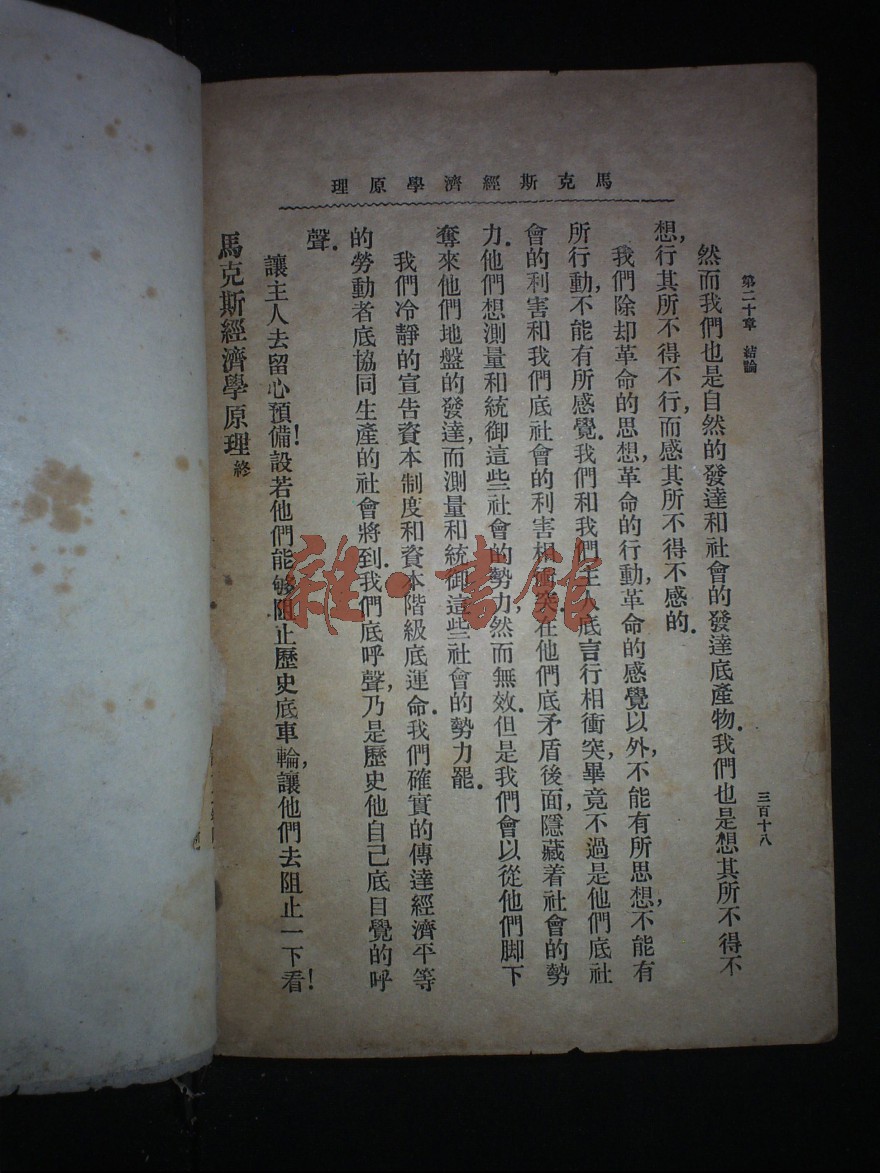 理原學濟經斯克馬
第二十章 結論
三百十八
然而我們也是自然的發達和社會的發達底產物.我們也是想其所不得不
想,行其所不得不行,而感其所不得不感的.
我們除却革命的思想,革命的行動,革命的感覺以外,不能有所思想,不能有
所行動,不能有所感覺.我們和我們主人底言行相衝突,畢竟不過是他們底社
會的利害和我們底社會的利害相衝突.在他們底矛盾後面,隱藏着社會的勢
力.他們想測量和統御這些社會的勢力,然而無效.但是我們會以從他們脚下
奪來他們地盤的發達,而測量和統御這些社會的勢力罷.
我們冷靜的宣告資本制度和資本階級底運命.我們確實的傳達經濟平等
的勞動者底協同生產的社會將到.我們底呼聲,乃是歷史他自己底自覺的呼
聲.
讓主人去留心預備!設若他們能够阻止歷史底車輪,讓他們去阻止一下看!
馬克斯經濟學原理 終
雜·書館